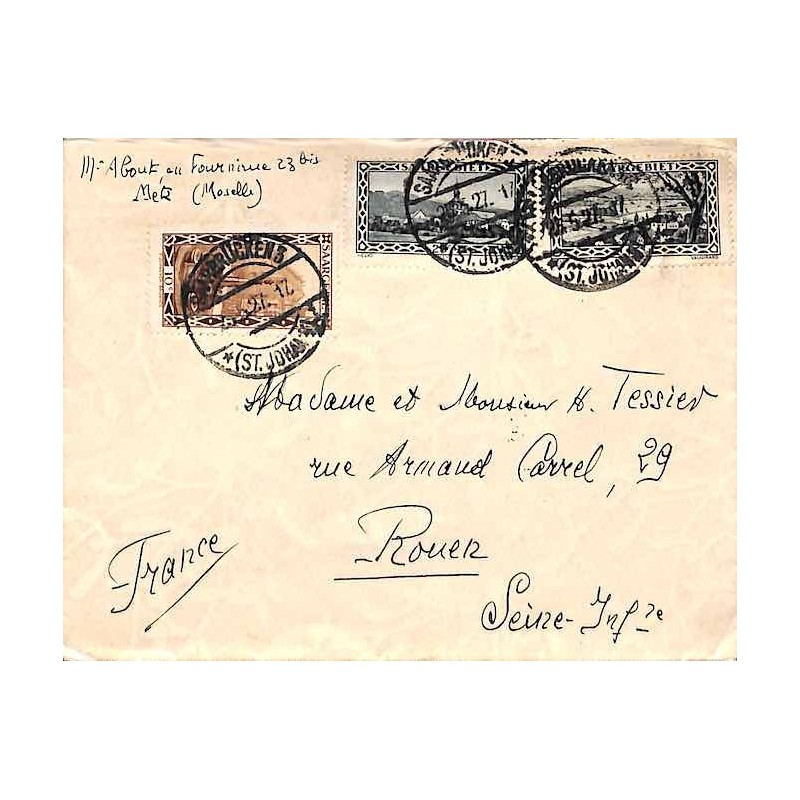 Mr About en Fournirue 23 bis
Metz (Moselle)
SAARGEBIET
SAARGEBIET
SAARBRÜCKEN 3
27. 17
*(ST. JOHANN)
SAARBRÜCKEN
27. 17
*(ST. JOHANN)
(ST. JOHANN)
Madame et Monsieur H. Tessier
rue Armand Carrel, 29
Rouen
France
Seine-Infre